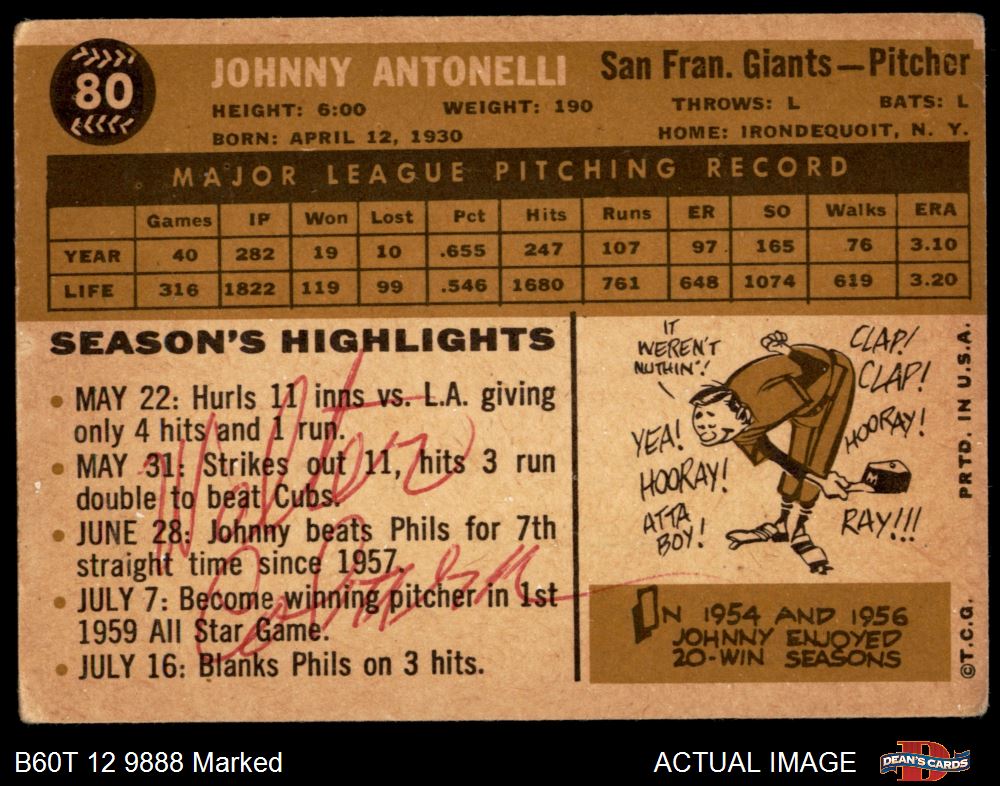 80
JOHNNY ANTONELLI San Fran. Giants—Pitcher
HEIGHT: 6:00 WEIGHT: 190 THROWS: L BATS: L
BORN: APRIL 12, 1930 HOME: IRONDEQUOIT, N. Y.
MAJOR LEAGUE PITCHING RECORD
Games IP Won Lost Pct Hits Runs ER SO Walks ERA
YEAR 40 282 19 10 .655 247 107 97 165 76 3.10
LIFE 316 1822 119 99 .546 1680 761 648 1074 619 3.20
SEASON'S HIGHLIGHTS
• MAY 22: Hurls 11 inns vs. L.A. giving
only 4 hits and 1 run.
• MAY 31: Strikes out 11, hits 3 run
double to beat Cubs.
• JUNE 28: Johnny beats Phils for 7th
straight time since 1957.
• JULY 7: Become winning pitcher in 1st
1959 All Star Game.
• JULY 16: Blanks Phils on 3 hits.
IT
WEREN'T
NUTHIN'!
CLAP!
CLAP!
YEA!
HOORAY!
HOORAY!
ATTA
BOY!
RAY!!!
IN 1954 AND 1956
JOHNNY ENJOYED
20-WIN SEASONS
PRTD. IN U.S.A.
©T.C.G.
B60T 12 9888 Marked
ACTUAL IMAGE
DEAN'S CARDS